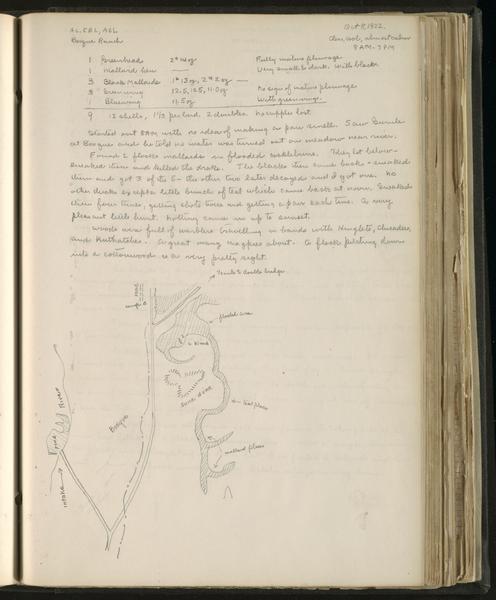 AL, CAL, ASL
Oct 8, 1922.
Bosque Ranch
Clear, cool, almost calm
8 AM - 7 PM
1 Greenhead 2# 14 oz Fully mature plumage
1 Mallard hen —— Very small & dark. With blacks
3 Black Mallards 1# 13 oz, 2# 2 oz —
3 Greenwing 12.5, 12.5, 11.0 oz No sign of mature plumage
1 Bluewing 11.5 oz With greenwing.
9 12 shells, 1 1/3 per bird. 2 doubles. No cripples lost.
Started out 8 AM with no idea of making a fair smell. Saw
at Bosque and he told us water was turned out on meadow near river.
Found 2 flocks mallards in flooded cockleburs. They lit below -
sneaked them and killed the drake. The blacks then came back - sneaked
them and got 3 of the 5 - the other two later decoyed and I got one. No
other ducks except a little bunch of teal which came back at noon. Sneaked
them four times, getting shots twice and getting a pair each time. A very
pleasant little hunt. Nothing came in up to sunset.
Woods were full of warblers travelling in bands with Kinglets, Chicadees,
and Nuthatches. A great many magpies about. A flock pitching down
into a cottonwood is a very pretty sight.
Trail to double bridge
road
camp
flooded area
blind
Sand dune
Teal place
mallard places
Bosque
River
intake